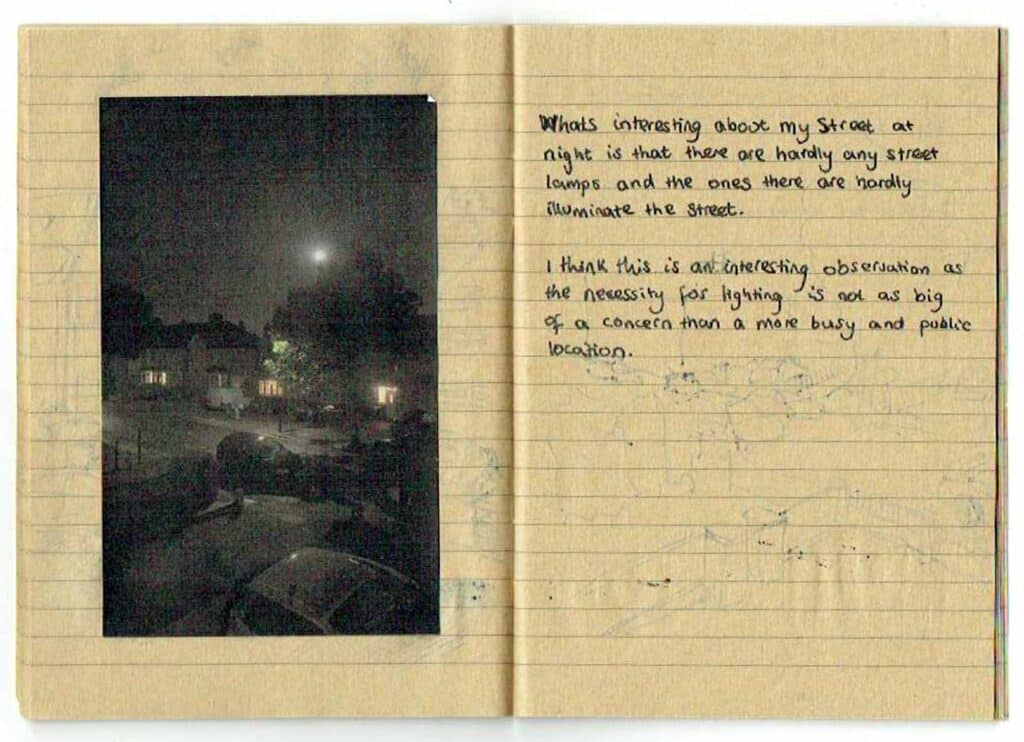 Whats interesting about my Street at
night is that there are hardly any street
lamps and the ones there are hardly
illuminate the street.
I think this is an interesting observation as
the necessity for lighting is not as big
of a concern than a more busy and public
location.